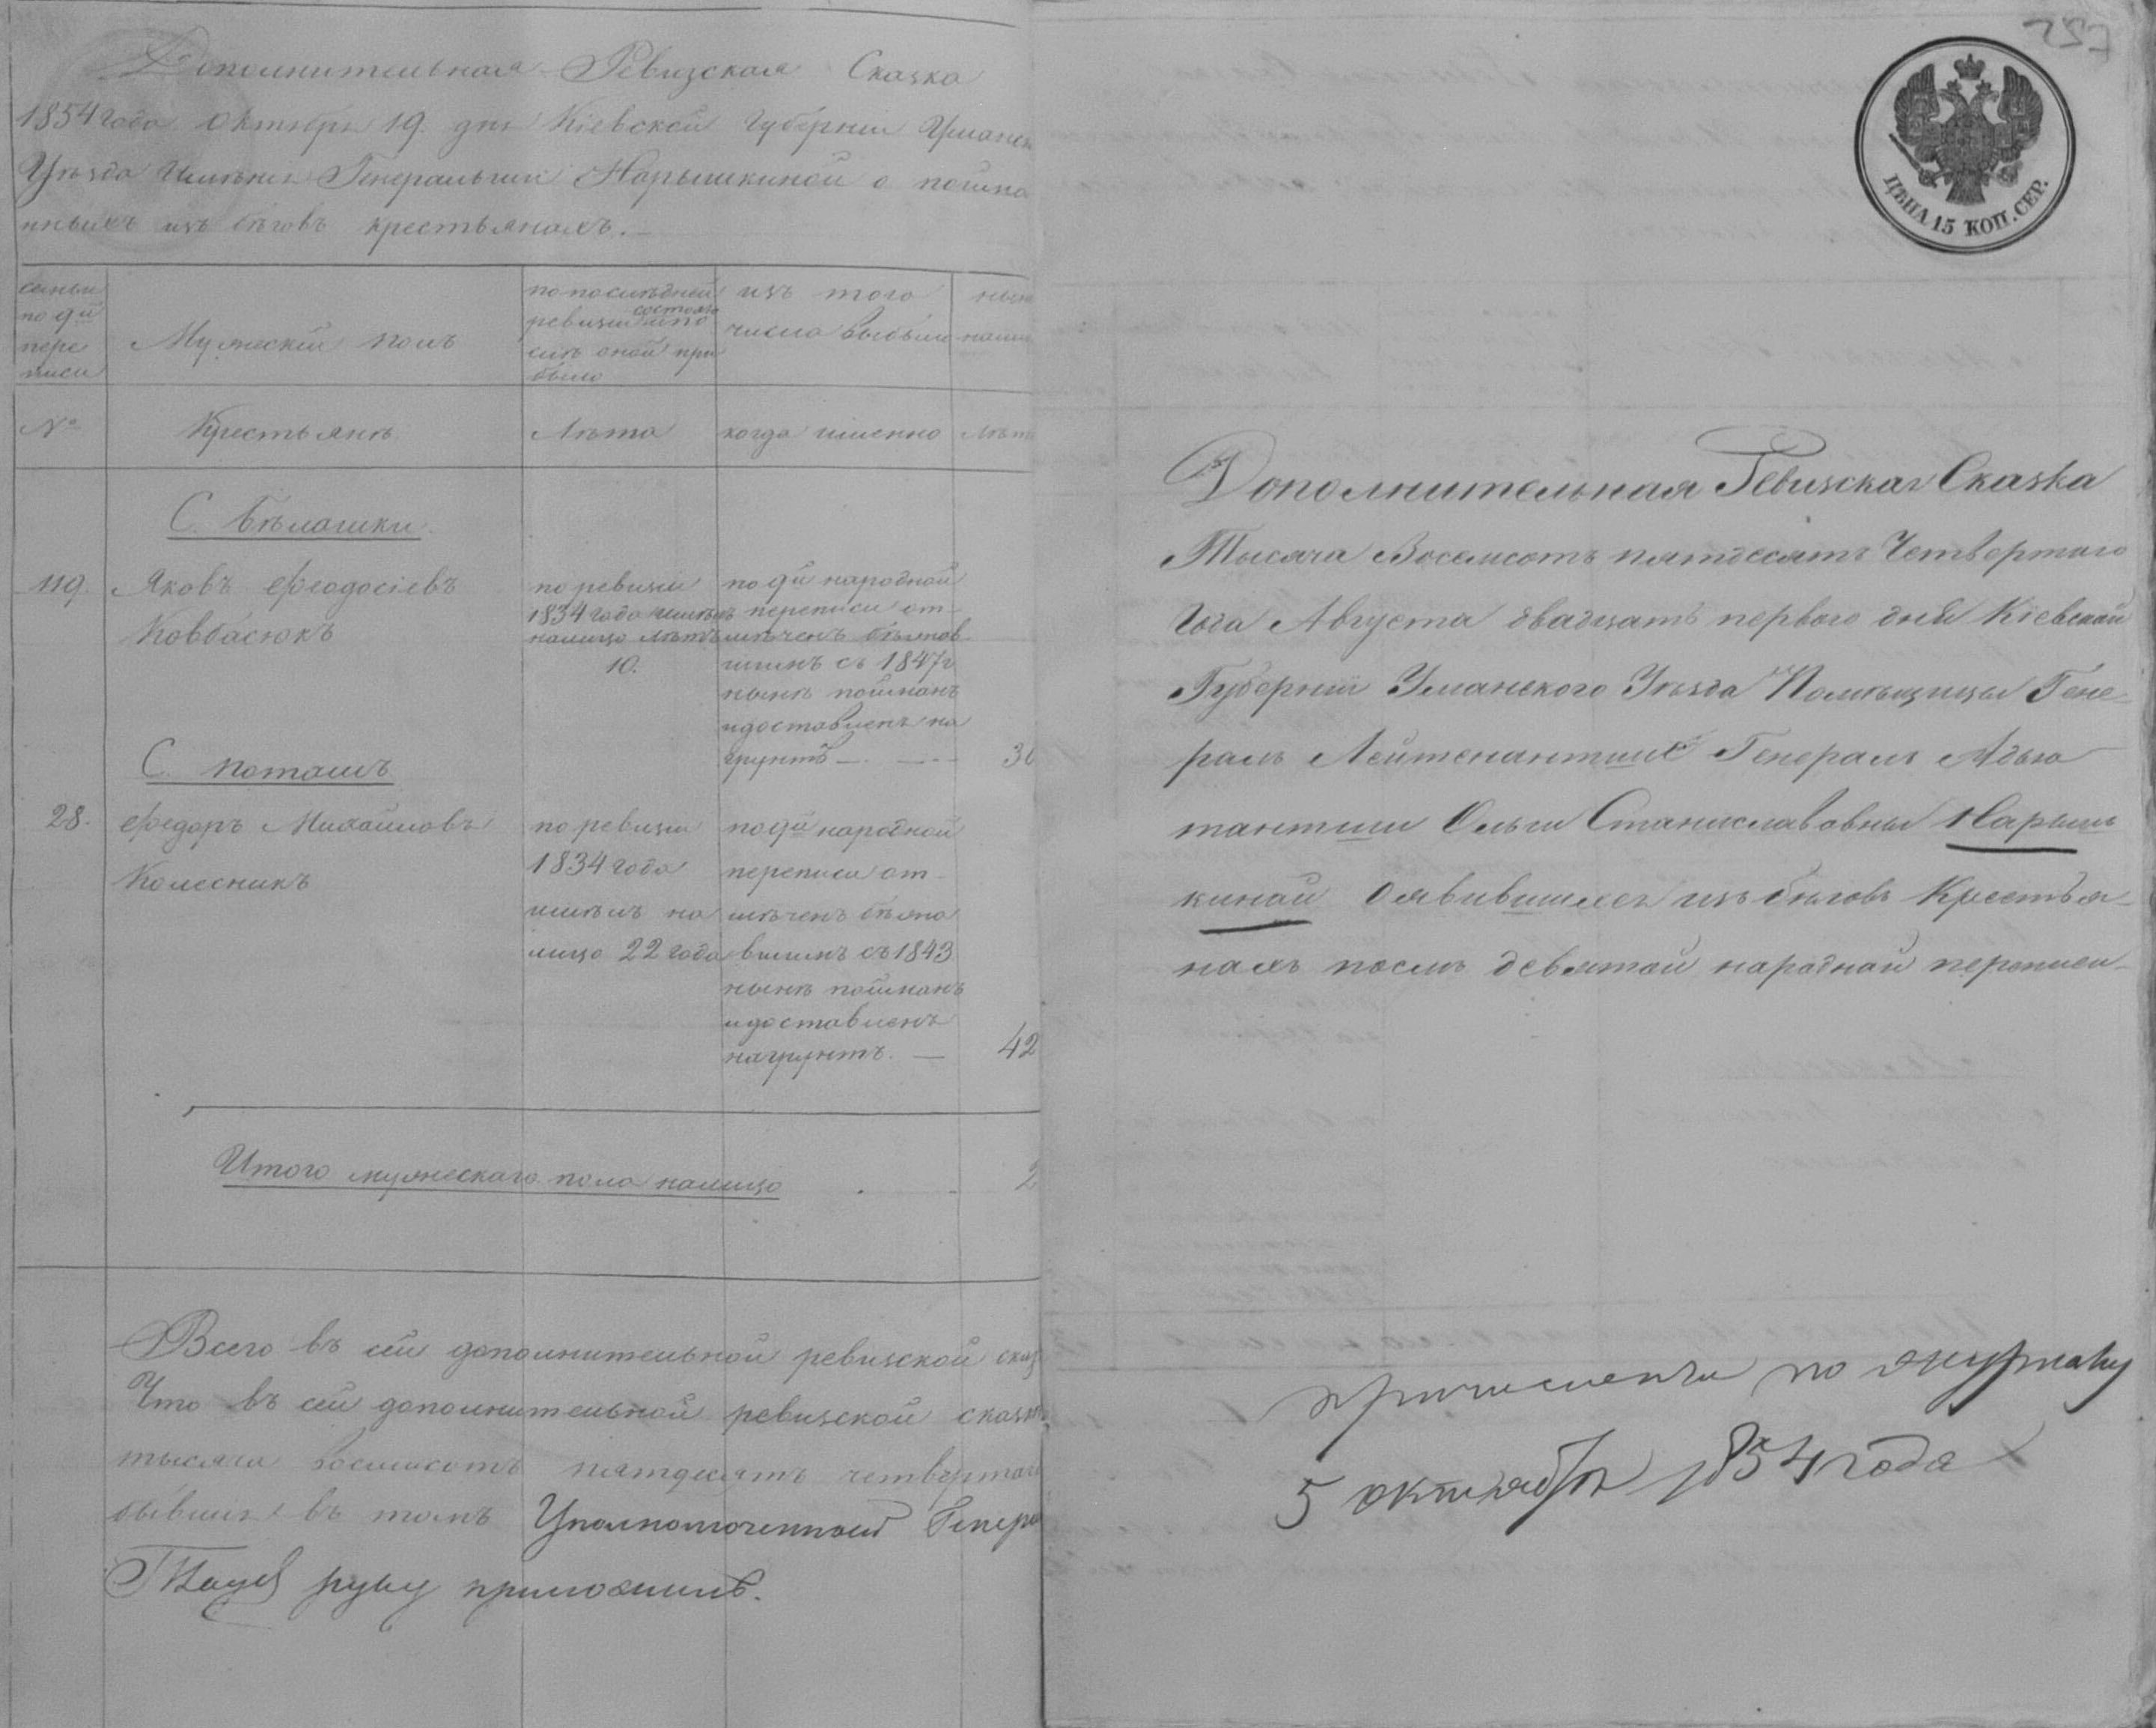 Дополнительная Ревизская Сказка
1854 года Октября 19 дня Кіевской Губерніи Уманск
Уѣзда Имѣнія Генеральши Нарышкиной о пойма
нныхъ изъ бѣговъ крестьянахъ.
семьи
по 9й
пере
писи
Мужескій полъ
по послѣдней
ревизіи состояло и по
слѣ оной при
было
изъ того
числа выбыло
нынѣ
нали
№
Крестьянѣ
Лѣта
когда именно
Лѣт
С. Бѣлашки
119.
Яковъ Феодосіевъ
Ковбасюкъ
по ревизіи
1834 года имѣлъ
налицо лѣтъ
10.
по 9й народной
переписи от-
мѣченъ бѣжав
шимъ съ 1847 г
нынѣ пойманъ
и доставленъ на
грунтъ —
30
С. Поташъ
28.
Федоръ Михайловъ
Колесникъ
по ревизіи
1834 года
имѣлъ на
лицо 22 года
по 9й народной
переписи от-
мѣченъ бѣжа
вшимъ съ 1843
нынѣ пойманъ
и доставленъ
на грунтъ. —
42
Итого мужескаго пола налицо
2
Всего въ сей дополнительной ревизской сказ
Что въ сей дополнительной ревизской сказк
тысяча восемьсотъ пятдесятъ четвертаго
бывшія въ томъ Уполномоченный Генера
руку приложилъ.
257
ЦѢНА 15 КОП. СЕР.
Дополнительная Ревизская Сказка
Тысяча Восемсотъ пятдесятъ Четвертого
Года Августа двадцать первого дня Кіевской
Губерніи Уманского Уѣзда Помѣщицы Гене-
ралъ Лейтенантши Генералъ Адъю
тантши Ольги Станиславовны Нарыш
киной о явившихся изъ бѣговъ Крестья-
нахъ послѣ девятой народной переписи
причислены по журналу
5 октября 1854 года